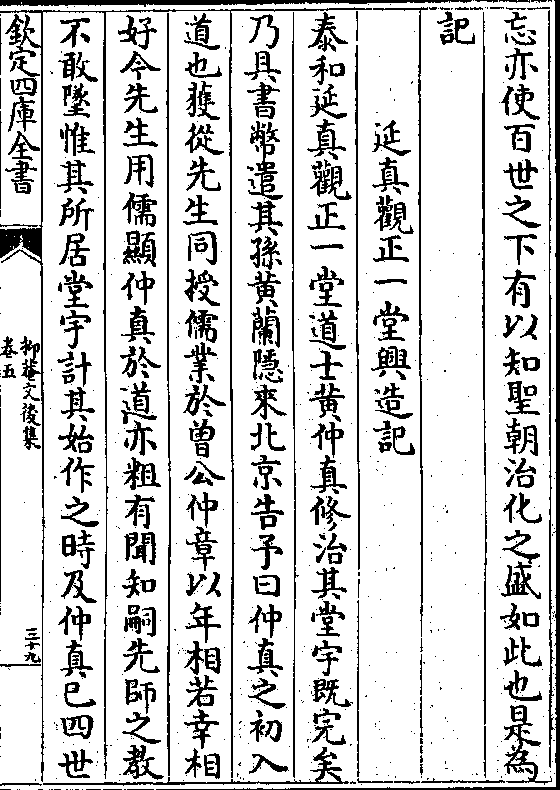 忘亦使百世之下有以知聖朝治化之盛如此也是為
記
延真觀正一堂興造記
泰和延真觀正一堂道士黄仲真修治其堂宇既完矣
乃具書幣遣其孫黄蘭隱來北京告予曰仲真之初入
道也獲從先生同授儒業於曾公仲章以年相若幸相
好今先生用儒顯仲真於道亦粗有聞知嗣先師之教
不敢墜惟其所居堂宇計其始作之時及仲真已四世
欽定四庫全書
抑菴文後集
卷五
三十九